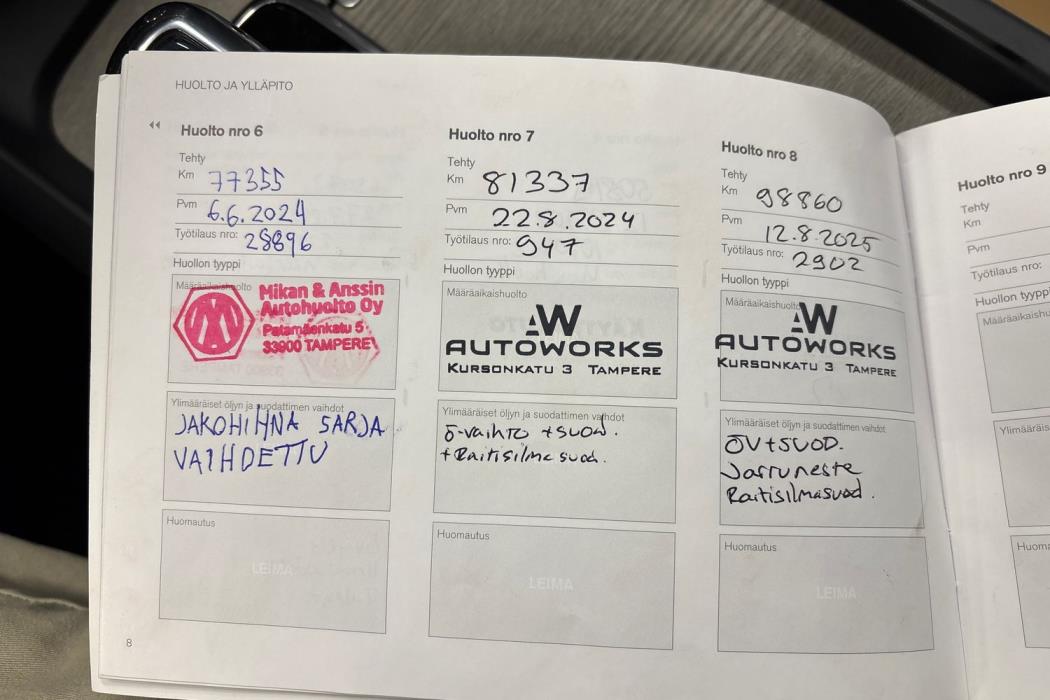 HUOLTO JA YLLÄPITO
Huolto nro 6
Tehty
Km 77355
Pvm 6.6.2024
Työtilaus nro: 28896
Huollon tyyppi
Määräaikaishuolto
Mikan & Anssin
Autohuolto Oy
Patamäenkatu 5
33900 TAMPERE
Ylimääräiset öljyn ja suodattimen vaihdot
JAKOHIHNA SARJA
VAIHDETTU
Huomautus
LEIMA
8
Huolto nro 7
Tehty
Km 81337
Pvm 22.8.2024
Työtilaus nro: 947
Huollon tyyppi
Määräaikaishuolto
AW
AUTOWORKS
KURSONKATU 3 TAMPERE
Ylimääräiset öljyn ja suodattimen vaihdot
Ö-vaihto + suod.
+ Raitisilmasuod.
Huomautus
LEIMA
Huolto nro 8
Tehty
Km 98860
Pvm 12.8.2025
Työtilaus nro: 2902
Huollon tyyppi
Määräaikaishuolto
AW
AUTOWORKS
KURSONKATU 3 TAMPERE
Ylimääräiset öljyn ja suodattimen vaihdot
ÖV+SUOD.
Jarruneste
Raitisilmasuod.
Huomautus
LEIMA
Huolto nro 9
Tehty
Km
Pvm
Työtilaus nro:
Huollon tyypp
Määräaikaishu
Ylimääräis
Huoma